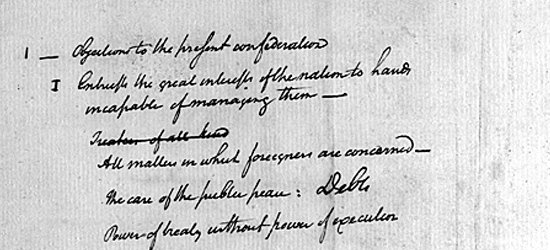 1 — Objections to the present confederation
I Entrusts the great interests of the nation to hands
incapable of managing them —
Treaties of all kind
All matters in which foreigners are concerned —
The care of the public peace: Debts
Power of treaty without power of execution